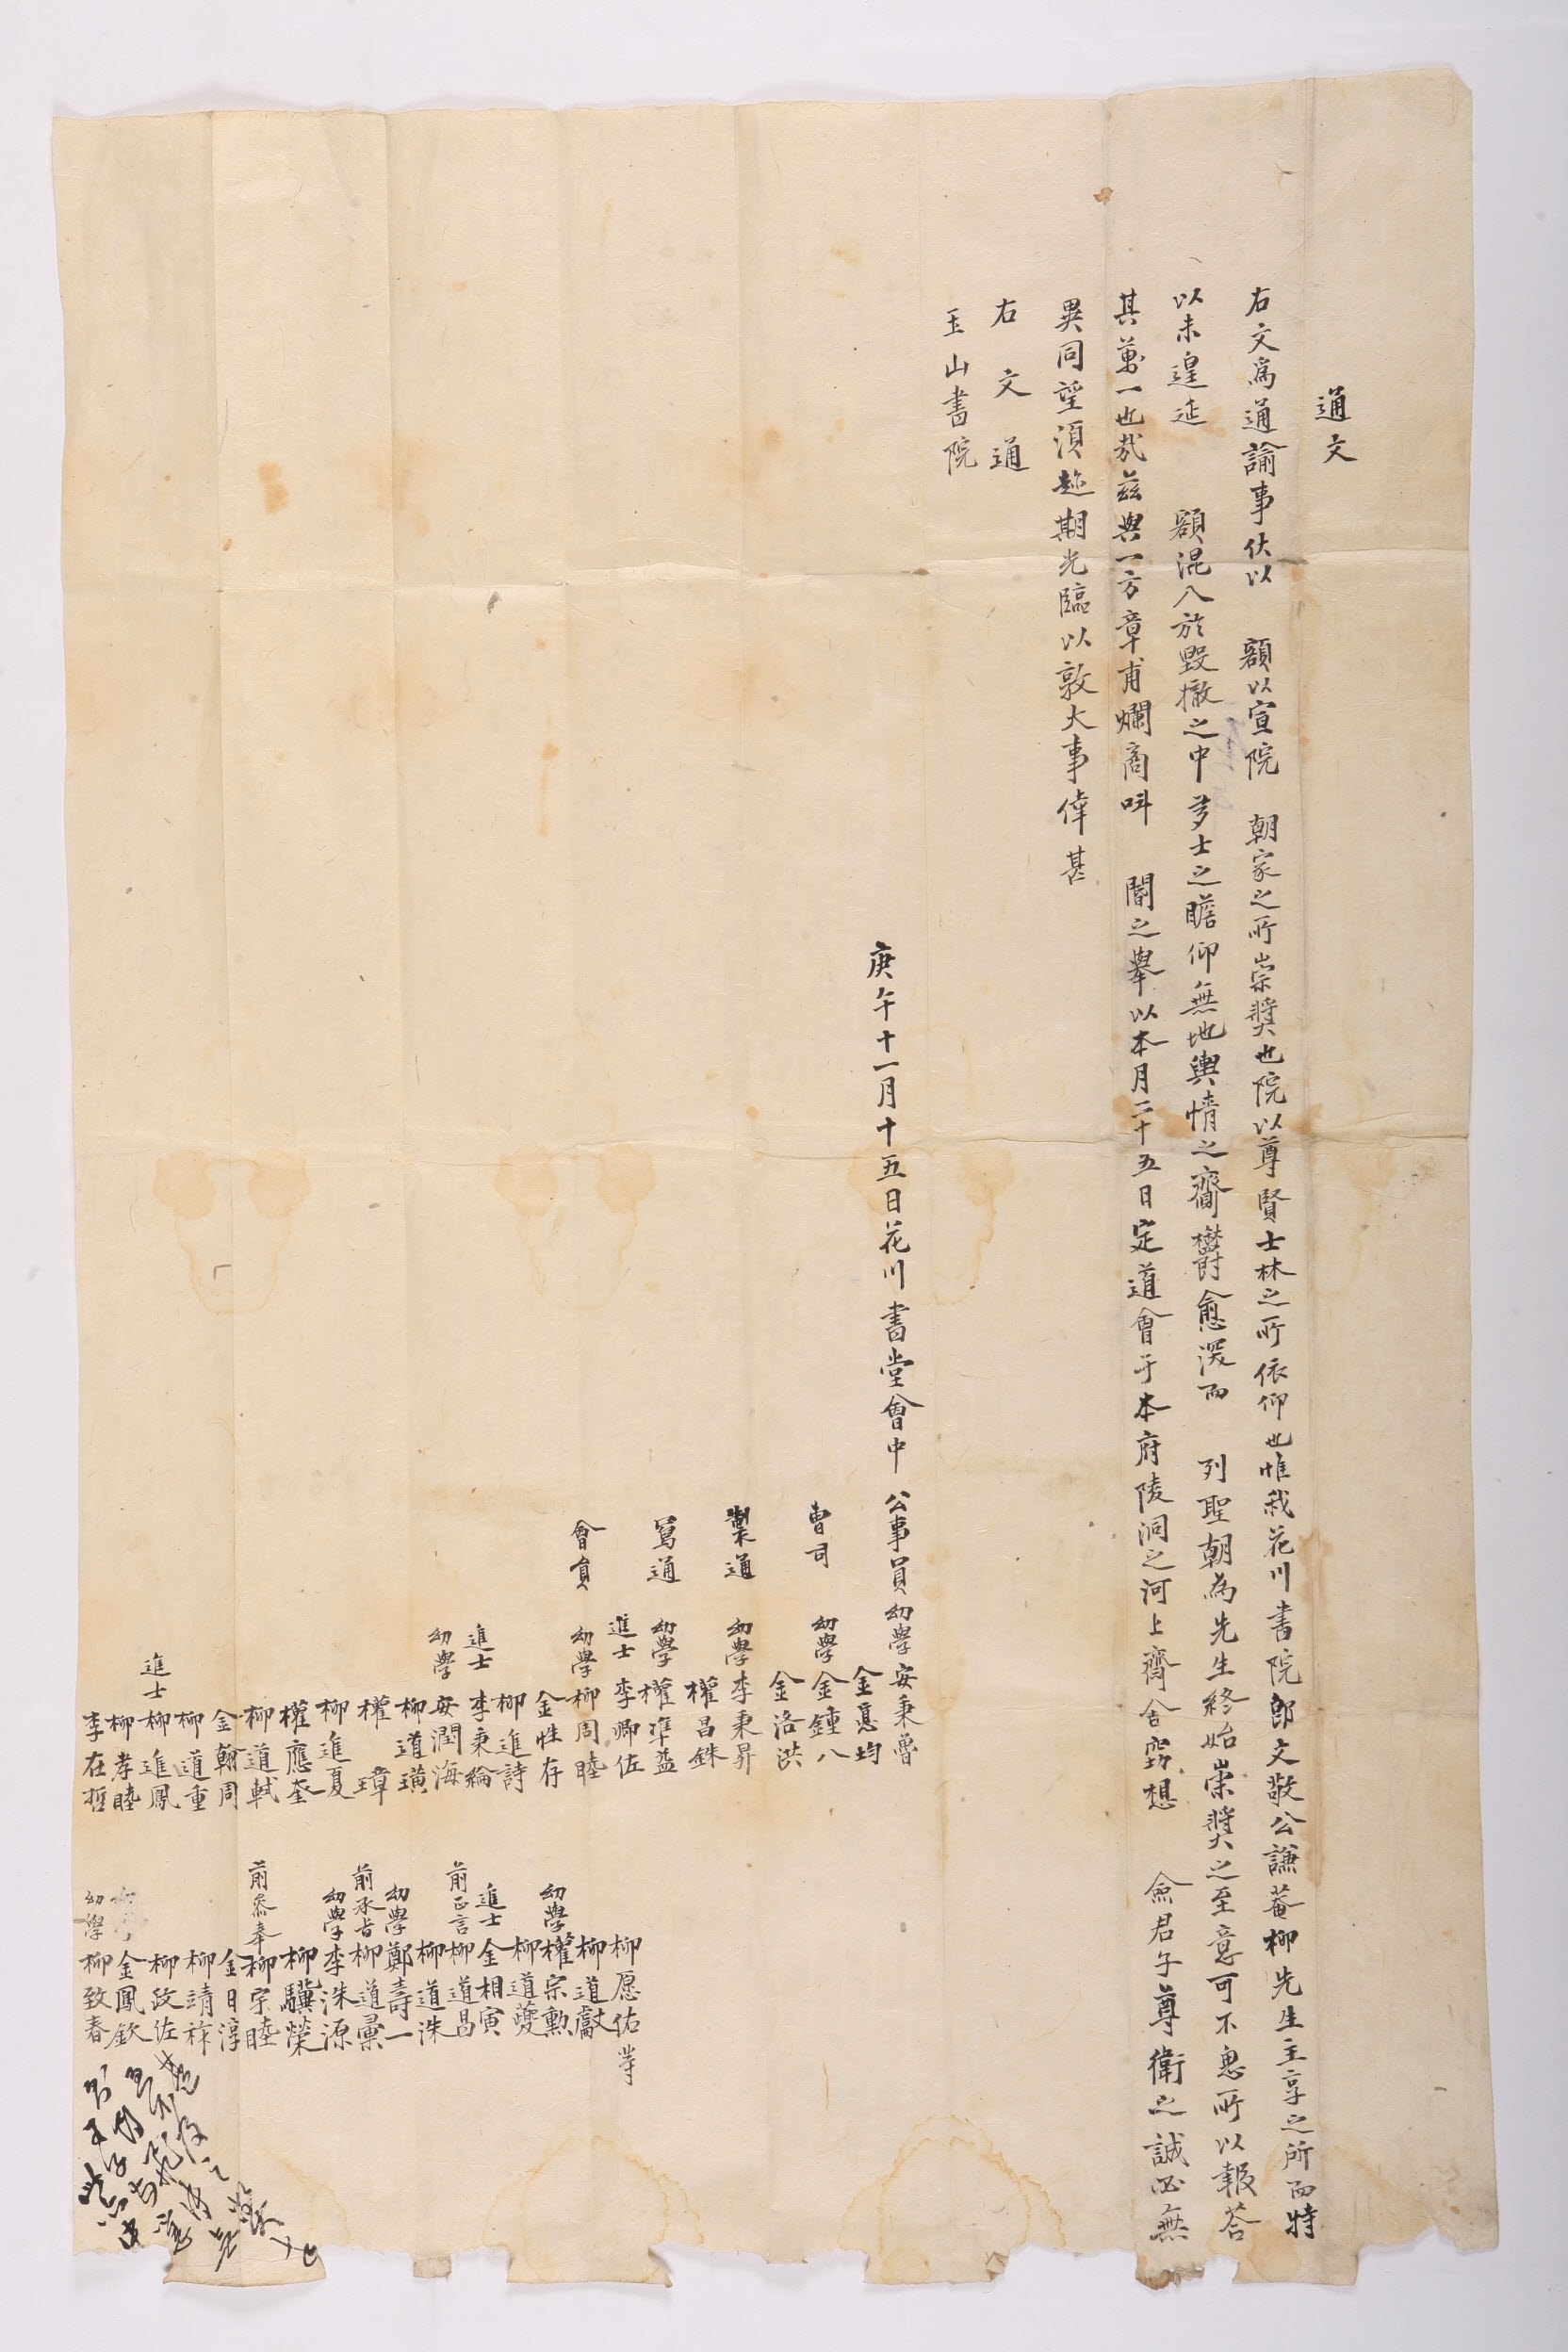 通文
右文爲通諭事伏以 額以宣院 朝家之所崇奬也院以尊賢士林之所依仰也惟我花川書院郎文敬公謙菴柳先生主享之所而特
以未遑延 額混入於毀撤之中多士之瞻仰無地輿情之齎欝愈深而 列聖朝爲先生終始崇奬之至意可不思所以報答
其萬一也哉玆與一方章甫爛商叫 閽之擧以本月二十五日定道會于本府陵洞之河上齋舍窃想 僉君子尊衛之誠必無
異同望須趁期光臨以敦大事倖甚
右文通
玉山書院
庚午十一月十五日花川書堂會中
公事員幼學安秉魯
金憙均
曹司 幼學金鍾八
金洛洪
製通 幼學李秉昇
權昌銖
寫通 幼學權準益
進士李卿佐
會員 幼學柳周睦
金性存
柳進詩
進士李秉綸
幼學安潤海
柳道璜
權璋
柳進夏
權應奎
柳道軾
金翰周
柳道重
進士柳進鳳
柳孝睦
李在哲
柳愿佑等
柳道獻
幼學權宗勳
柳道夔
進士金相寅
前正言柳道昌
柳道洙
幼學鄭壽一
前承旨柳道彙
幼學李洙源
柳驥榮
前參奉柳宗睦
金日淳
柳靖祚
柳政佐
金鳳欽
幼學柳致春